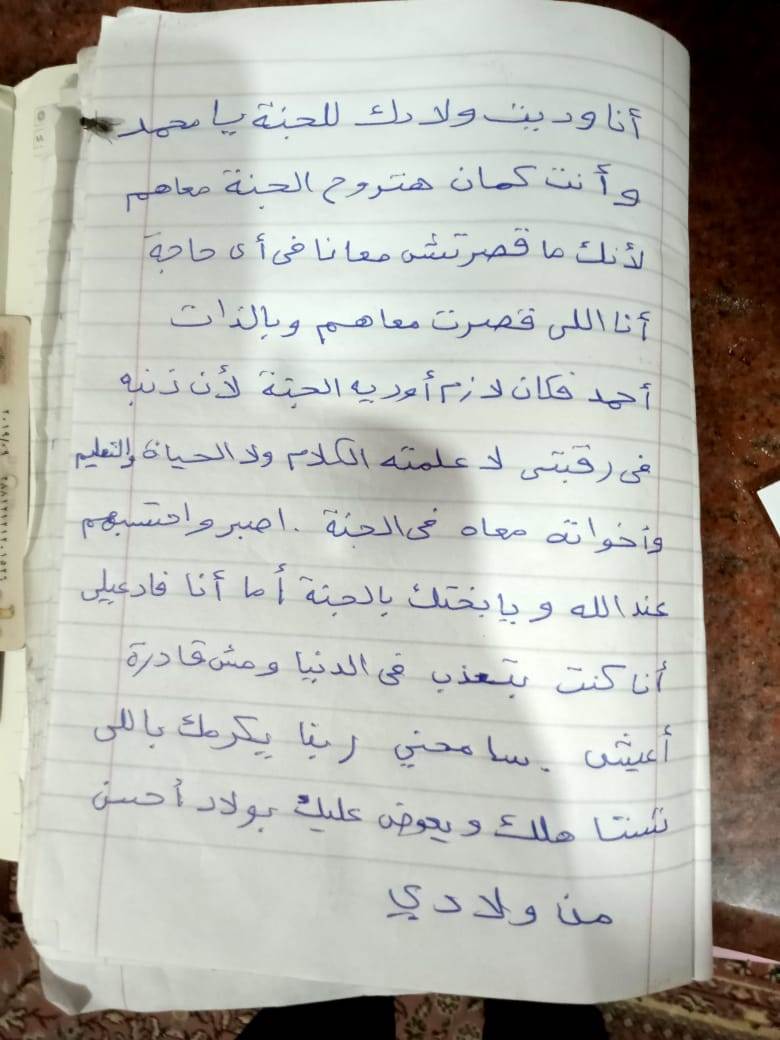 أنا وديت ولادك للجنة يا محمد
وأنت كمان هتروح الجنة معاهم
لأنك ما قصرتش معانا فى أى حاجة
أنا اللى قصرت معاهم وبالذات
أحمد فكان لازم أوريه الجنة لأن ذنبه
فى رقبتى لا علمته الكلام ولا الحياة والتعليم
وأخواته معاه فى الجنة . اصبر واحتسبهم
عند الله ويا بختك بالجنة أما أنا فادعيلى
أنا كنت بتعذب فى الدنيا ومش قادرة
أعيش . سامحني ربنا يكرمك باللى
تستاهلك ويعوض عليك بولاد أحسن
من ولادي